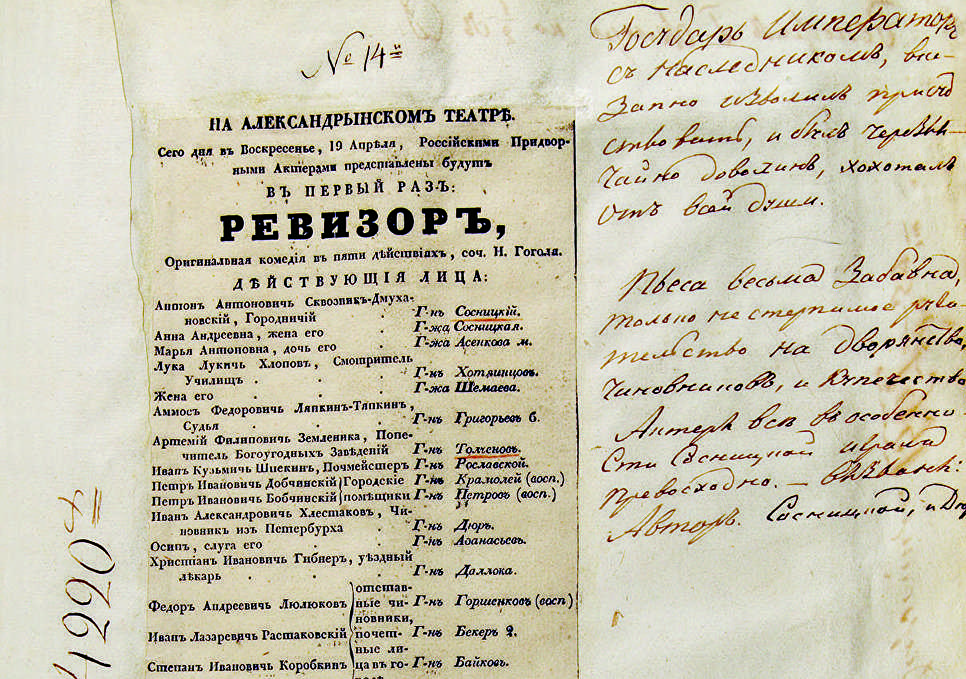 № 14й
НА АЛЕКСАНДРЫНСКОМЪ ТЕАТРѢ.
Сего дня въ Воскресенье, 19 Апрѣля, Россійскими Придвор-
ными Актерами представлены будутъ
ВЪ ПЕРВЫЙ РАЗЪ:
РЕВИЗОРЪ,
Оригинальная комедія въ пяти дѣйствіяхъ, соч. Н. Гоголя.
ДѢЙСТВУЮЩІЯ ЛИЦА:
Антонъ Антоновичь Сквозник-Дмуха-
новскій, Городничій . Г-нъ Сосницкій.
Анна Андреевна, жена его . Г-жа Сосницкая.
Марья Антоновна, дочь его . Г-жа Асенкова м.
Лука Лукичь Хлоповъ, Смотритель
Училищъ . . . . Г-нъ Хотяинцовъ.
Жена его . . . . Г-жа Шемаева.
Аммосъ Федоровичь Ляпкин-Тяпкинъ,
Судья . . . . Г-нъ Григорьевъ б.
Артемій Филиповичь Земленика, Попе-
читель Богоугодныхъ Заведеній Г-нъ Толченовъ.
Иванъ Кузьмичь Шпекинъ, Почмейстеръ Г-нъ Рославской.
Петръ Ивановичь Добчинскій Городскіе Г-нъ Крамолей (восп.)
Петръ Ивановичь Бобчинскій помѣщики Г-нъ Петровъ (восп.)
Иванъ Александровичь Хлестаковъ, Чи-
новникъ изъ Петербурха . Г-нъ Дюръ.
Осипъ, слуга его . . . Г-нъ Аѳанасьевъ.
Христіанъ Ивановичь Гибнеръ, уѣздный
лѣкарь . . . . Г-нъ Даллока.
отстав-
Федоръ Андреевичь Люлюковъ ные чи- Г-нъ Горшенковъ (восп)
новники,
Иванъ Лазаревичь Растаковскій почет- Г-нъ Бекеръ 2.
ные ли-
Степанъ Ивановичь Коробкинъ ца въ го- Г-нъ Байковъ.
Государь Императоръ
съ Наслѣдникомъ, вне-
запно изволилъ присуд
ствовать, и былъ чрезвы-
чайно доволенъ, хохоталъ
отъ всей души.
Пьеса весьма забавна,
только не стерпимое руга-
тельство на дворянство,
чиновниковъ, и купечество.
Актеры всѣ въ особенно-
сти Сосницкой играли
превосходно. — вызваны:
Авторъ. Сосницкой, и Дюр
4220